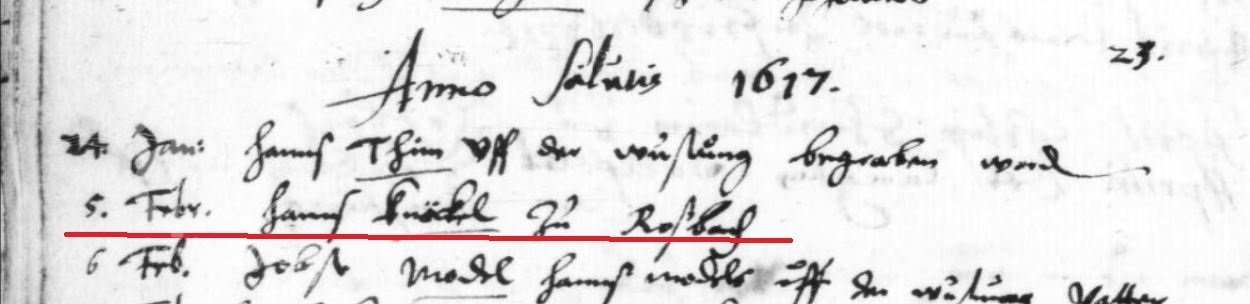 23.
Anno Salutis 1617.
24. Jan: Hanns Thim uff der wüstung begraben word
5. Febr. Hanns Knöckel Zu Rosbach
6 Feb. Jobst Model Hanns models uff der wüstung